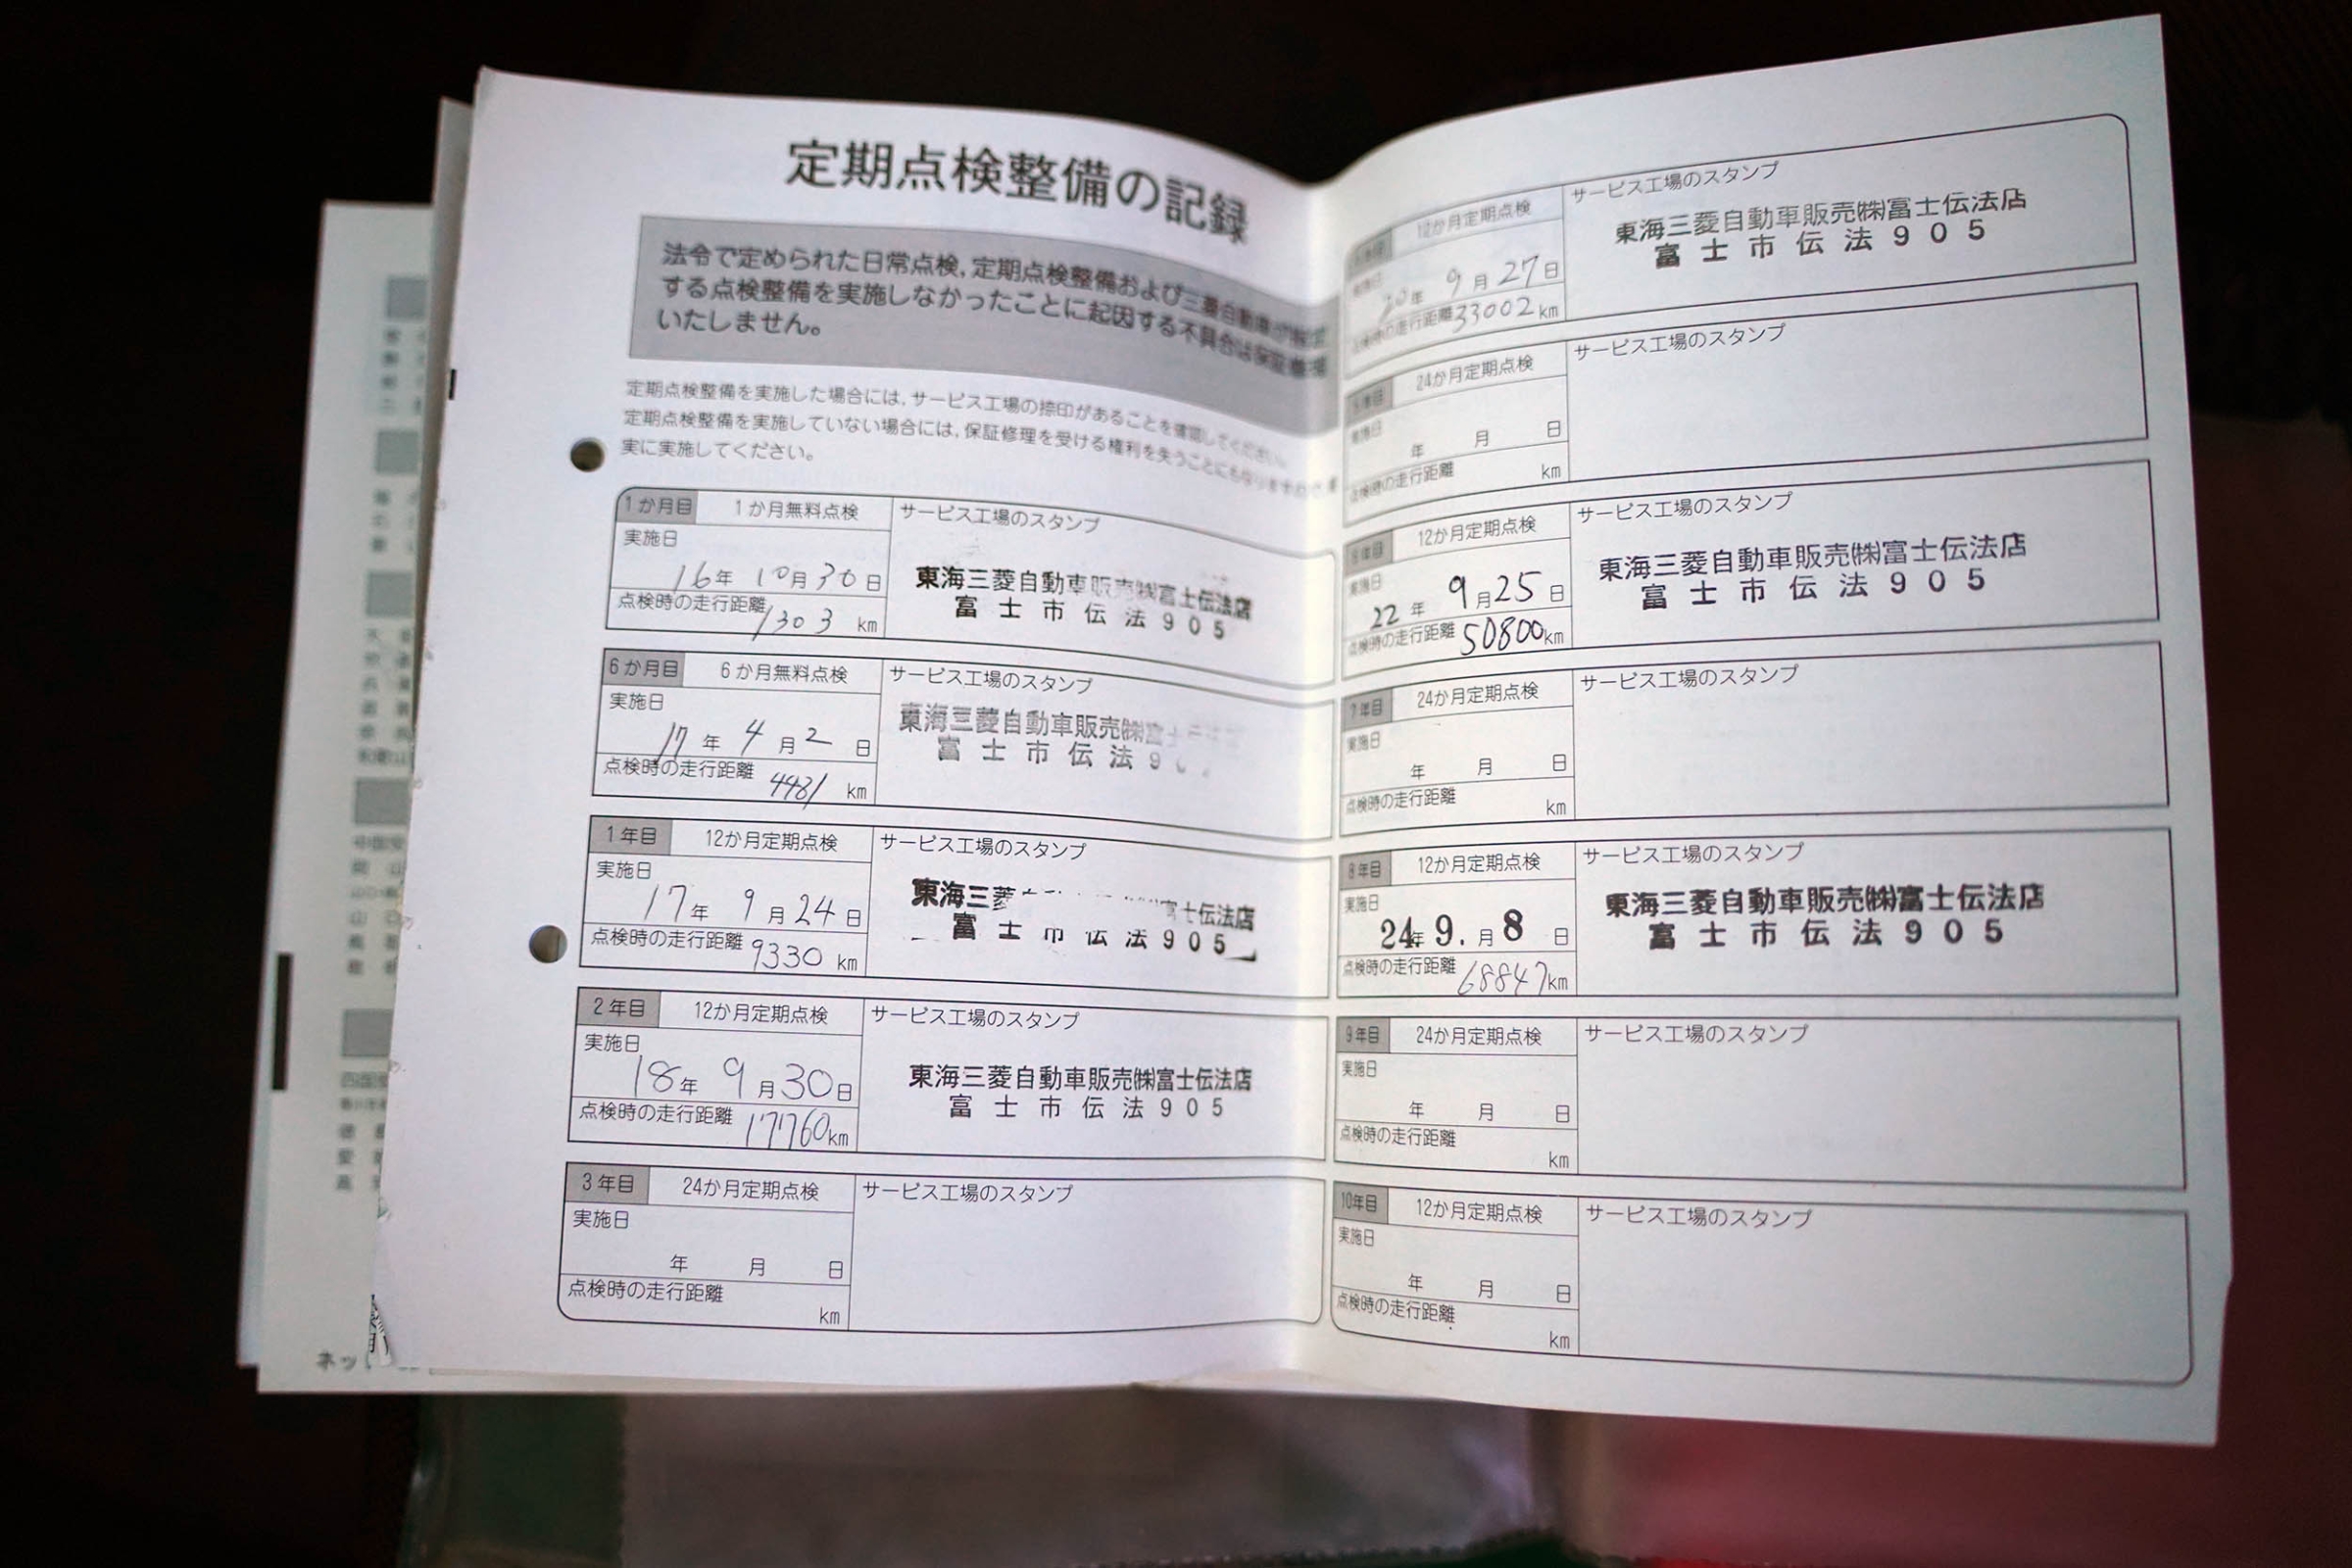 定期点検整備の記録
法令で定められた日常点検,定期点検整備および三菱自動車が指定
する点検整備を実施しなかったことに起因する不具合は保証修理
いたしません。
定期点検整備を実施した場合には,サービス工場の捺印があることを確認してください。
定期点検整備を実施していない場合には,保証修理を受ける権利を失うことにもなりますので
実に実施してください。
1か月目 1か月無料点検 サービス工場のスタンプ
実施日
16年 10月30日
点検時の走行距離 1303 km
東海三菱自動車販売㈱富士伝法店
富士市伝法905
6か月目 6か月無料点検 サービス工場のスタンプ
実施日
17年 4月2日
点検時の走行距離 4481 km
東海三菱自動車販売㈱富
富士市伝法9
1年目 12か月定期点検 サービス工場のスタンプ
実施日
17年 9月24日
点検時の走行距離 9330 km
東海三菱 富士伝法店
富士市伝法905
2年目 12か月定期点検 サービス工場のスタンプ
実施日
18年 9月30日
点検時の走行距離 17760km
東海三菱自動車販売㈱富士伝法店
富士市伝法905
3年目 24か月定期点検 サービス工場のスタンプ
実施日
年 月 日
点検時の走行距離
km
12か月定期点検 サービス工場のスタンプ
実施日
20年 9月27日
点検時の走行距離33002km
東海三菱自動車販売㈱富士伝法店
富士市伝法905
5年目 24か月定期点検 サービス工場のスタンプ
実施日
年 月 日
点検時の走行距離 km
6年目 12か月定期点検 サービス工場のスタンプ
実施日
22年 9月25日
点検時の走行距離 50800km
東海三菱自動車販売㈱富士伝法店
富士市伝法905
7年目 24か月定期点検 サービス工場のスタンプ
実施日
年 月 日
点検時の走行距離 km
8年目 12か月定期点検 サービス工場のスタンプ
実施日
24年 9.月 8日
点検時の走行距離 68847km
東海三菱自動車販売㈱富士伝法店
富士市伝法905
9年目 24か月定期点検 サービス工場のスタンプ
実施日
年 月 日
点検時の走行距離
km
10年目 12か月定期点検 サービス工場のスタンプ
実施日
年 月 日
点検時の走行距離
km